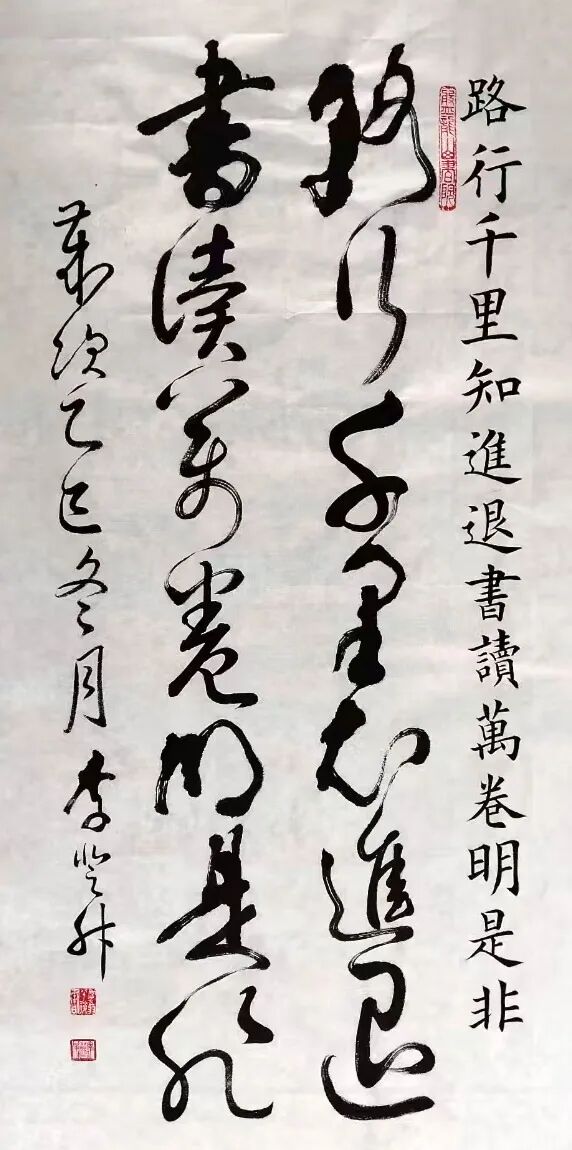 路行千里知進退書讀萬卷明是非
路行千里知進退
書讀萬卷明是非
歲次乙巳冬月李登升